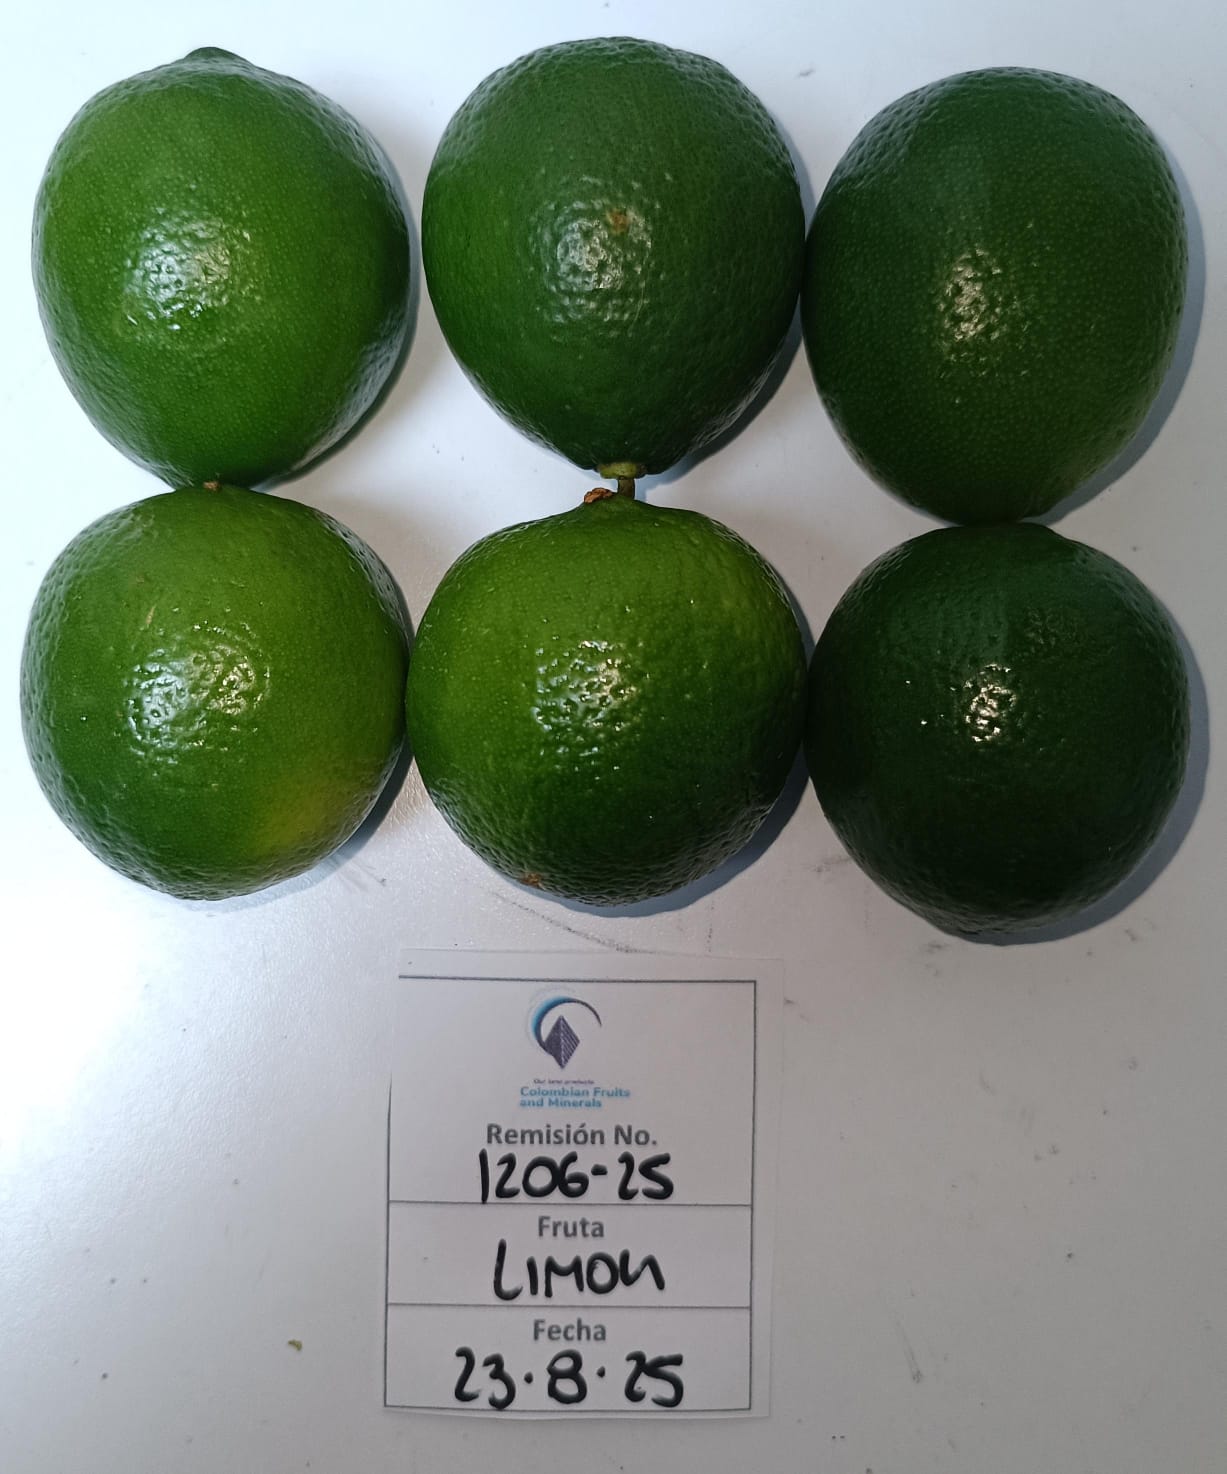 Our land products
Colombian Fruits
and Minerals
Remisión No.
1206-25
Fruta
LIMON
Fecha
23.8.25